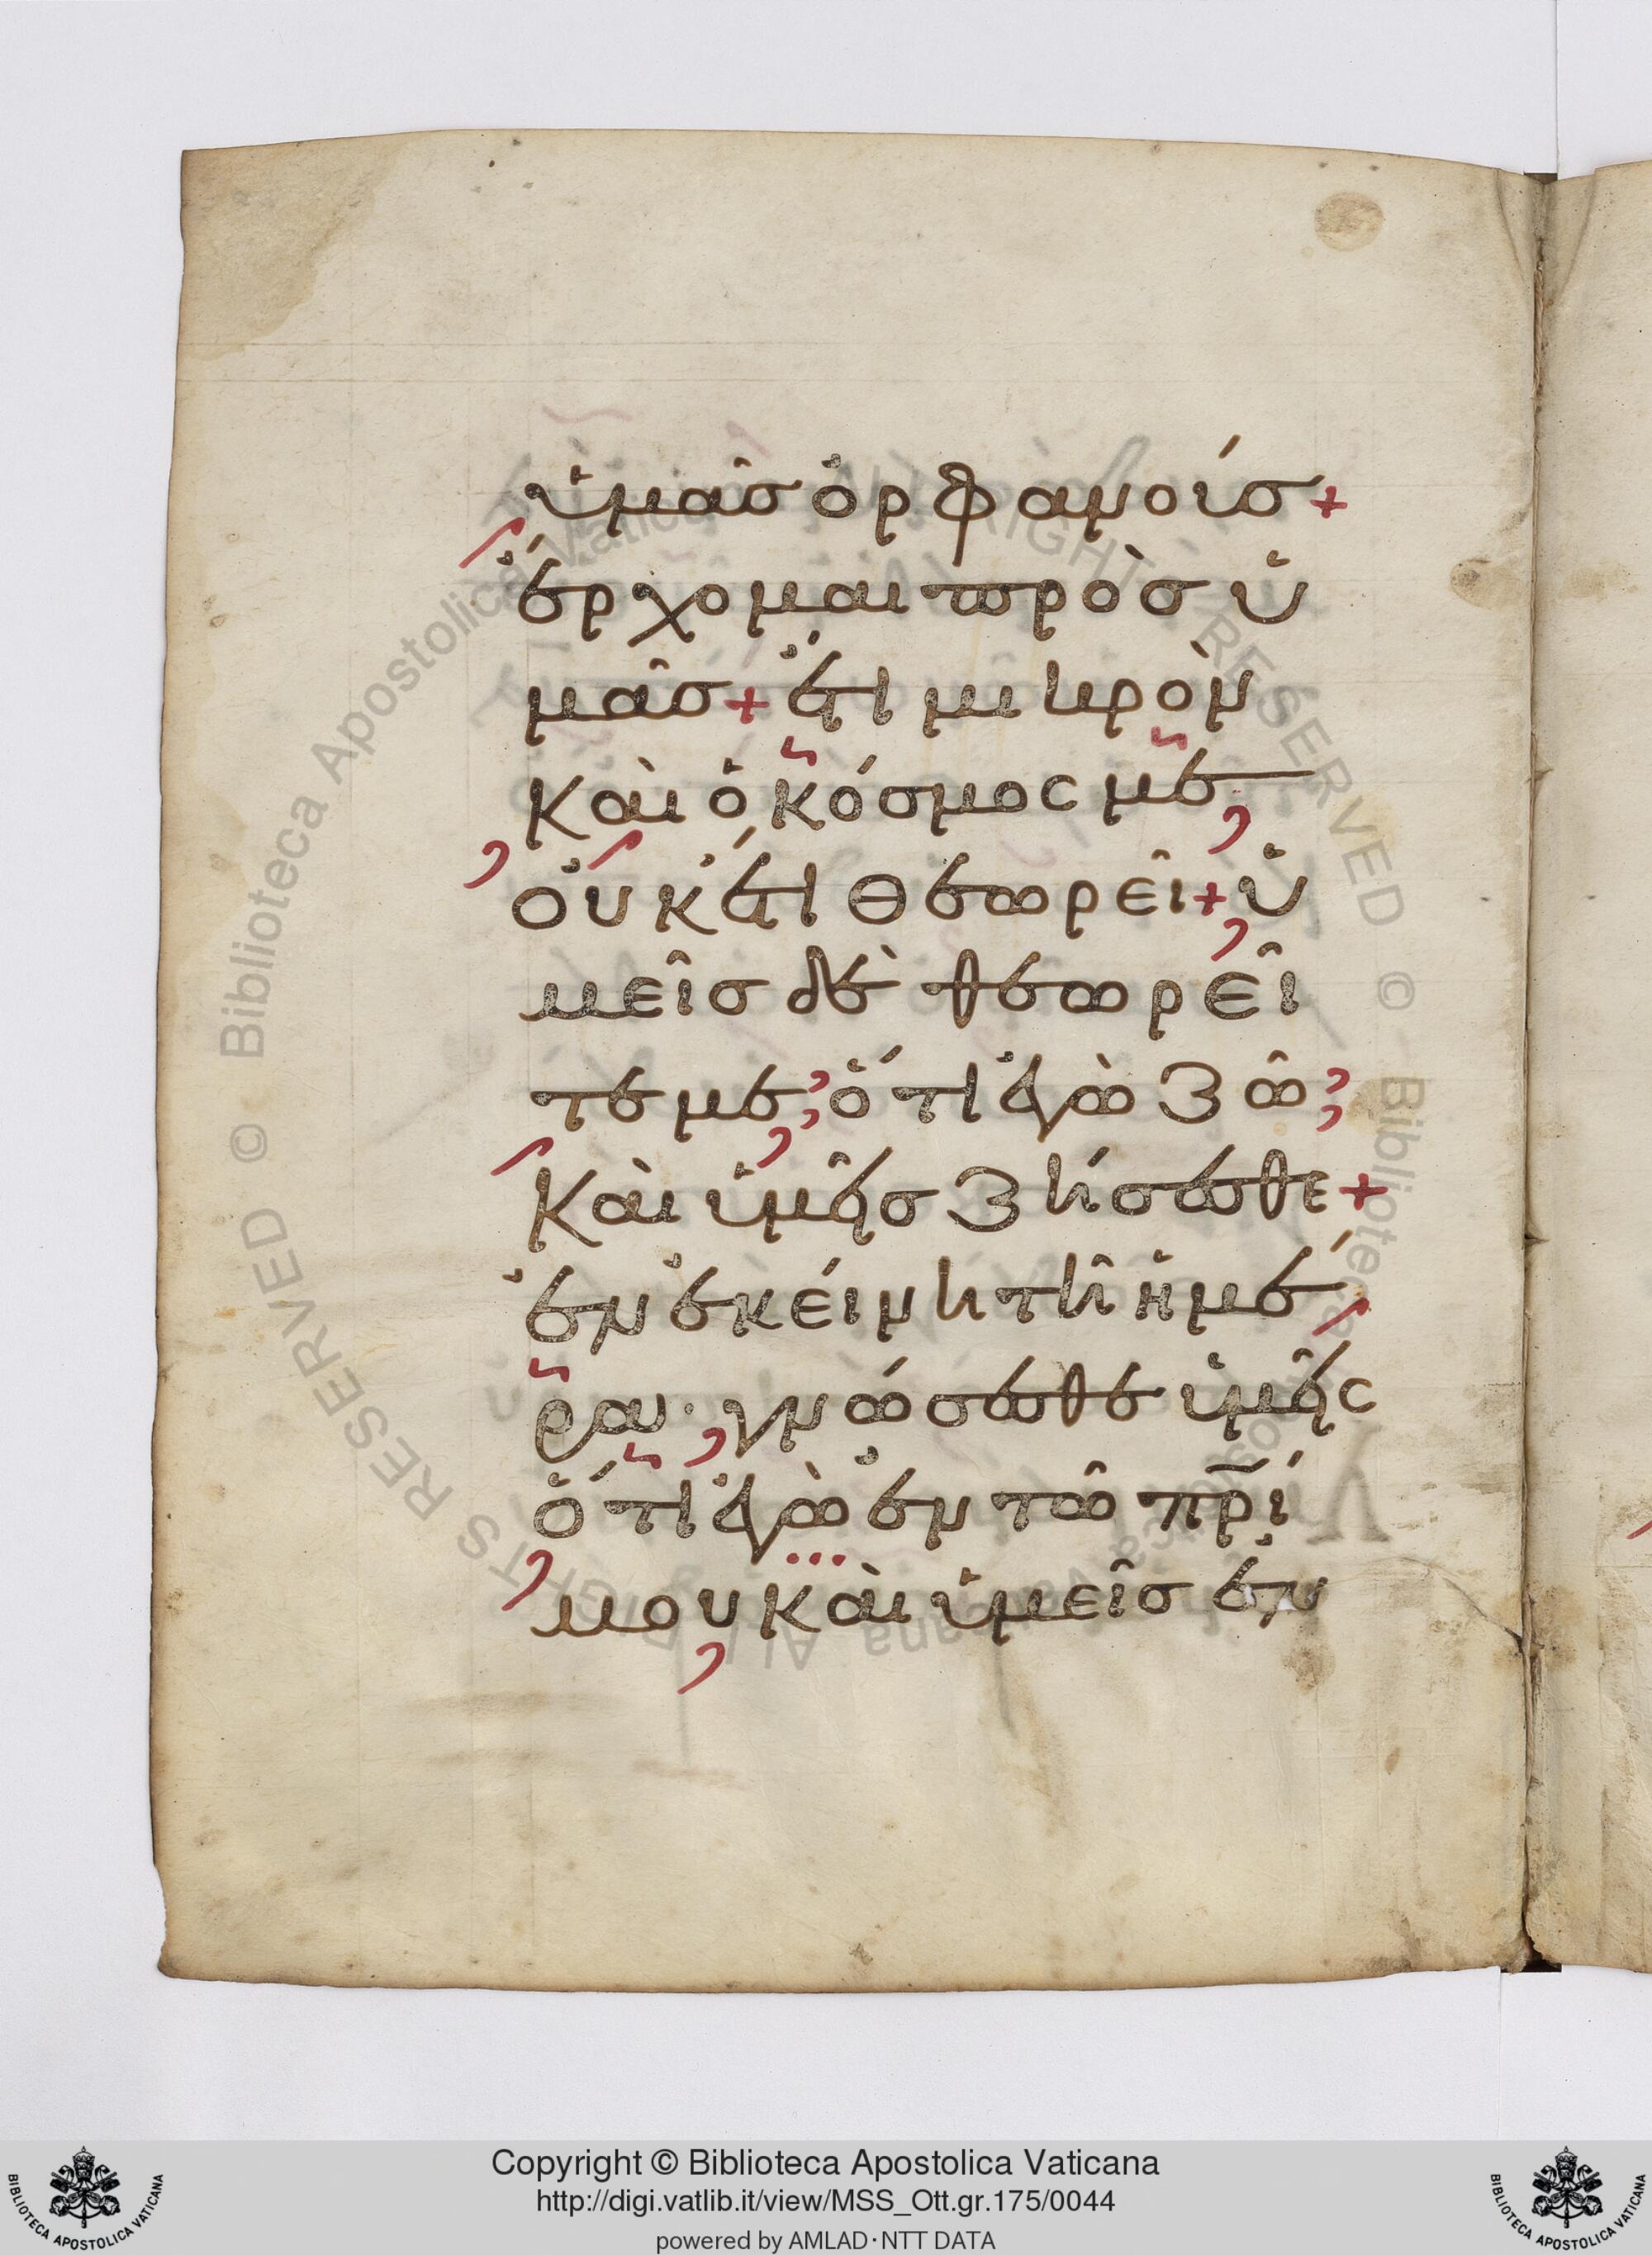 ὑμᾶσ ὀρφανοίσ+
ἔρχομαι πρὸσ ὑ
μᾶσ+ ἔτι μικρὸν
καὶ ὁ κόσμος με
οὐκέτι θεωρεῖ+ ὑ
μεῖσ δὲ θεωρεῖ
τε με· ὅτι ἐγὼ ζῶ·
καὶ ὑμεῖσ ζήσεσθε+
ἐν ἐκείνη τῆ ἡμέ
ρα· γνώσεσθε ὑμεῖς
ὅτι ἐγὼ ἐν τῶ πρ̅ί
μου καὶ ὑμεῖσ ἐν
© Biblioteca Apostolica Vaticana ALL RIGHTS RESERVED © Biblioteca Apostolica Vaticana ALL RIGHTS RESERVED
Copyright © Biblioteca Apostolica Vaticana
http://digi.vatlib.it/view/MSS_Ott.gr.175/0044
powered by AMLAD·NTT DATA
BIBLIOTECA APOSTOLICA VATICANA
BIBLIOTECA APOSTOLICA VATICANA